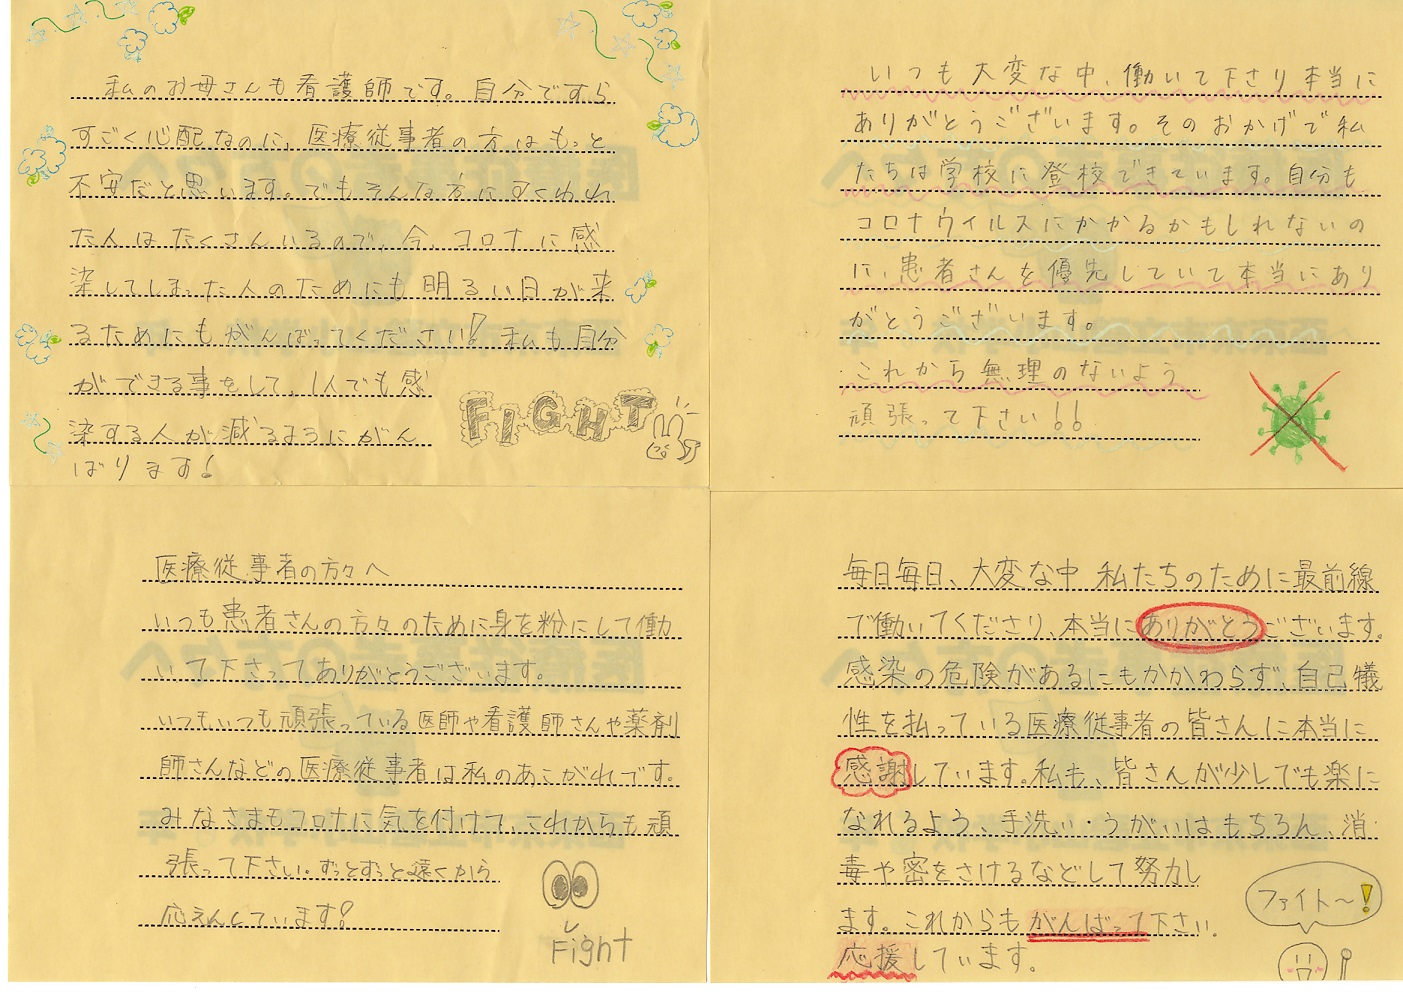 私のお母さんも看護師です。自分ですら
すごく心配なのに、医療従事者の方はもっと
不安だと思います。でもそんな方にすくわれ
た人はたくさんいるので、今、コロナに感
染してしまった人のためにも明るい日が来
るためにもがんばってください！私も自分
ができる事をして、1人でも感
染する人が減るようにがん
ばります！
FIGHT
いつも大変な中、働いて下さり本当に
ありがとうございます。そのおかげで私
たちは学校に登校できています。自分も
コロナウイルスにかかるかもしれないの
に、患者さんを優先していて本当にあり
がとうございます。
これから無理のないよう
頑張って下さい！！
医療従事者の方々へ
いつも患者さんの方々のために身を粉にして働
いて下さってありがとうございます。
いつもいつも頑張っている医師や看護師さんや薬剤
師さんなどの医療従事者は私のあこがれです。
みなさまもコロナに気を付けて、これからも頑
張って下さい。ずっとずっと遠くから
応えんしています！
Fight
毎日毎日、大変な中 私たちのために最前線
で働いてくださり、本当にありがとうございます。
感染の危険があるにもかかわらず、自己犠
性を払っている医療従事者の皆さんに本当に
感謝しています。私も、皆さんが少しでも楽に
なれるよう、手洗い・うがいはもちろん、消
毒や密をさけるなどして努力し
ます。これからもがんばって下さい。
応援しています。
ファイト〜！